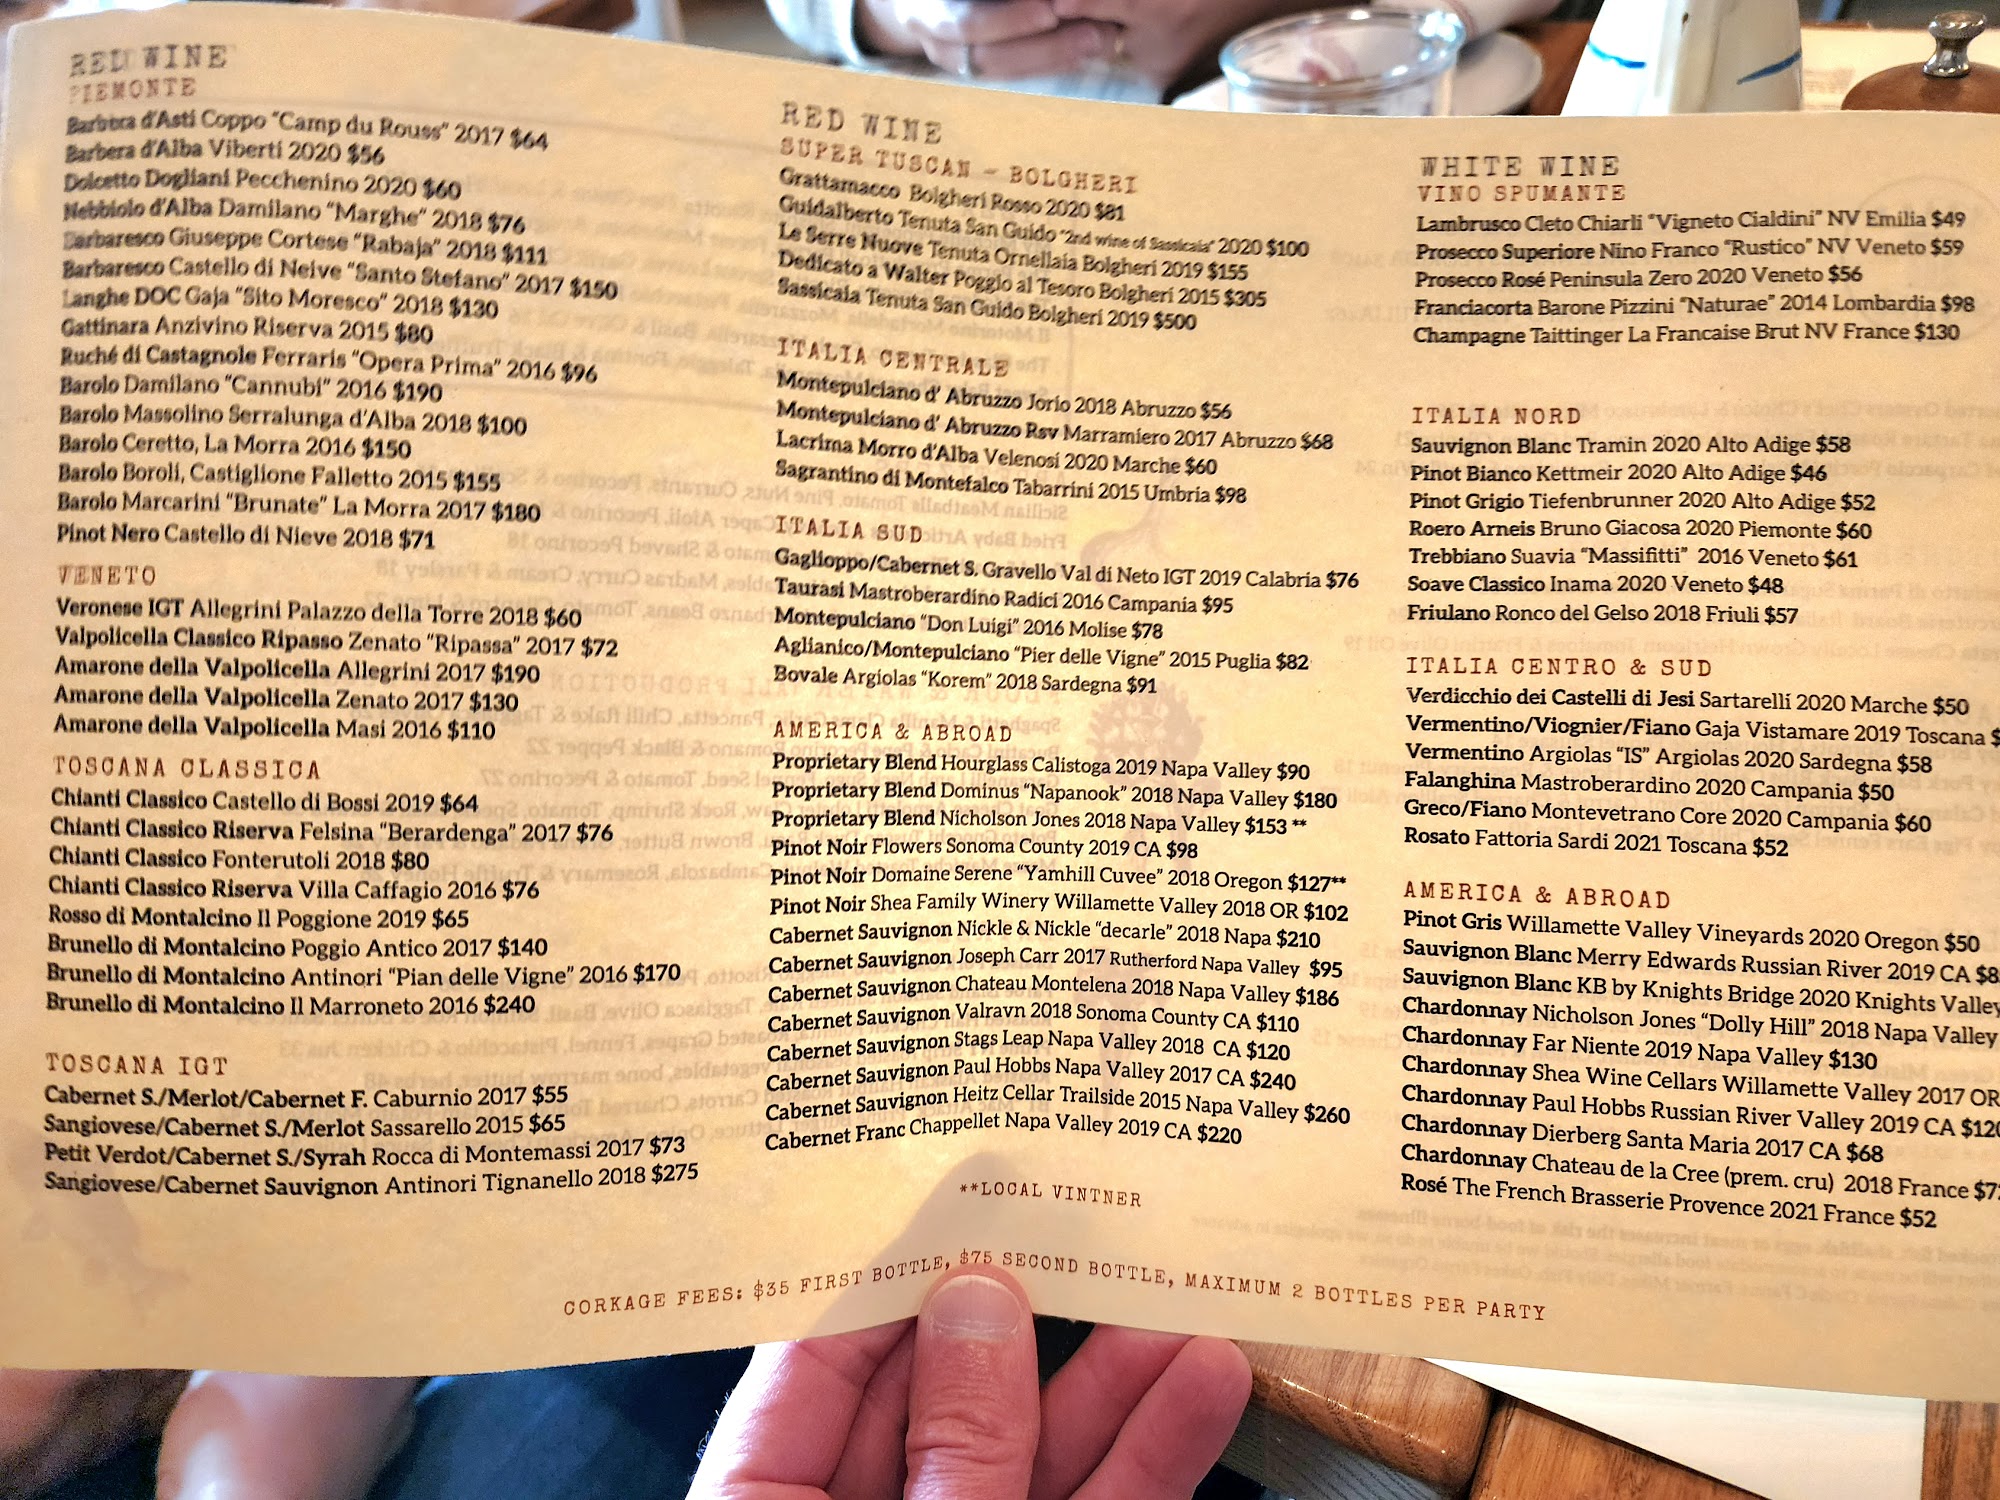 RED WINE
PIEMONTE
Barbera d'Asti Coppo "Camp du Rouss" 2017 $64
Barbera d'Alba Viberti 2020 $56
Dolcetto Dogliani Pecchenino 2020 $60
Nebbiolo d'Alba Damilano "Marghe" 2018 $76
Barbaresco Giuseppe Cortese "Rabaja" 2018 $111
Barbaresco Castello di Neive "Santo Stefano" 2017 $150
Langhe DOC Gaja "Sito Moresco" 2018 $130
Gattinara Anzivino Riserva 2015 $80
Ruché di Castagnole Ferraris "Opera Prima" 2016 $96
Barolo Damilano "Cannubi" 2016 $190
Barolo Massolino Serralunga d'Alba 2018 $100
Barolo Ceretto, La Morra 2016 $150
Barolo Boroli, Castiglione Falletto 2015 $155
Barolo Marcarini "Brunate" La Morra 2017 $180
Pinot Nero Castello di Nieve 2018 $71
VENETO
Veronese IGT Allegrini Palazzo della Torre 2018 $60
Valpolicella Classico Ripasso Zenato "Ripassa" 2017 $72
Amarone della Valpolicella Allegrini 2017 $190
Amarone della Valpolicella Zenato 2017 $130
Amarone della Valpolicella Masi 2016 $110
TOSCANA CLASSICA
Chianti Classico Castello di Bossi 2019 $64
Chianti Classico Riserva Felsina "Berardenga" 2017 $76
Chianti Classico Fonterutoli 2018 $80
Chianti Classico Riserva Villa Caffagio 2016 $76
Rosso di Montalcino Il Poggione 2019 $65
Brunello di Montalcino Poggio Antico 2017 $140
Brunello di Montalcino Antinori "Pian delle Vigne" 2016 $170
Brunello di Montalcino Il Marroneto 2016 $240
TOSCANA IGT
Cabernet S./Merlot/Cabernet F. Caburnio 2017 $55
Sangiovese/Cabernet S./Merlot Sassarello 2015 $65
Petit Verdot/Cabernet S./Syrah Rocca di Montemassi 2017 $73
Sangiovese/Cabernet Sauvignon Antinori Tignanello 2018 $275
RED WINE
SUPER TUSCAN - BOLGHERI
Grattamacco Bolgheri Rosso 2020 $81
Guidalberto Tenuta San Guido "2nd wine of Sassicaia" 2020 $100
Le Serre Nuove Tenuta Ornellaia Bolgheri 2019 $155
Dedicato a Walter Poggio al Tesoro Bolgheri 2015 $305
Sassicaia Tenuta San Guido Bolgheri 2019 $500
ITALIA CENTRALE
Montepulciano d' Abruzzo Jorio 2018 Abruzzo $56
Montepulciano d' Abruzzo Rsv Marramiero 2017 Abruzzo $68
Lacrima Morro d'Alba Velenosi 2020 Marche $60
Sagrantino di Montefalco Tabarrini 2015 Umbria $98
ITALIA SUD
Gaglioppo/Cabernet S. Gravello Val di Neto IGT 2019 Calabria $76
Taurasi Mastroberardino Radici 2016 Campania $95
Montepulciano "Don Luigi" 2016 Molise $78
Aglianico/Montepulciano "Pier delle Vigne" 2015 Puglia $82
Bovale Argiolas "Korem" 2018 Sardegna $91
AMERICA & ABROAD
Proprietary Blend Hourglass Calistoga 2019 Napa Valley $90
Proprietary Blend Dominus "Napanook" 2018 Napa Valley $180
Proprietary Blend Nicholson Jones 2018 Napa Valley $153 **
Pinot Noir Flowers Sonoma County 2019 CA $98
Pinot Noir Domaine Serene "Yamhill Cuvee" 2018 Oregon $127**
Pinot Noir Shea Family Winery Willamette Valley 2018 OR $102
Cabernet Sauvignon Nickle & Nickle "decarle" 2018 Napa $210
Cabernet Sauvignon Joseph Carr 2017 Rutherford Napa Valley $95
Cabernet Sauvignon Chateau Montelena 2018 Napa Valley $186
Cabernet Sauvignon Valravn 2018 Sonoma County CA $110
Cabernet Sauvignon Stags Leap Napa Valley 2018 CA $120
Cabernet Sauvignon Paul Hobbs Napa Valley 2017 CA $240
Cabernet Sauvignon Heitz Cellar Trailside 2015 Napa Valley $260
Cabernet Franc Chappellet Napa Valley 2019 CA $220
**LOCAL VINTNER
WHITE WINE
VINO SPUMANTE
Lambrusco Cleto Chiarli "Vigneto Cialdini" NV Emilia $49
Prosecco Superiore Nino Franco "Rustico" NV Veneto $59
Prosecco Rosé Peninsula Zero 2020 Veneto $56
Franciacorta Barone Pizzini "Naturae" 2014 Lombardia $98
Champagne Taittinger La Francaise Brut NV France $130
ITALIA NORD
Sauvignon Blanc Tramin 2020 Alto Adige $58
Pinot Bianco Kettmeir 2020 Alto Adige $46
Pinot Grigio Tiefenbrunner 2020 Alto Adige $52
Roero Arneis Bruno Giacosa 2020 Piemonte $60
Trebbiano Suavia "Massifitti" 2016 Veneto $61
Soave Classico Inama 2020 Veneto $48
Friulano Ronco del Gelso 2018 Friuli $57
ITALIA CENTRO & SUD
Verdicchio dei Castelli di Jesi Sartarelli 2020 Marche $50
Vermentino/Viognier/Fiano Gaja Vistamare 2019 Toscana $
Vermentino Argiolas "IS" Argiolas 2020 Sardegna $58
Falanghina Mastroberardino 2020 Campania $50
Greco/Fiano Montevetrano Core 2020 Campania $60
Rosato Fattoria Sardi 2021 Toscana $52
AMERICA & ABROAD
Pinot Gris Willamette Valley Vineyards 2020 Oregon $50
Sauvignon Blanc Merry Edwards Russian River 2019 CA $8
Sauvignon Blanc KB by Knights Bridge 2020 Knights Valley
Chardonnay Nicholson Jones "Dolly Hill" 2018 Napa Valley
Chardonnay Far Niente 2019 Napa Valley $130
Chardonnay Shea Wine Cellars Willamette Valley 2017 OR
Chardonnay Paul Hobbs Russian River Valley 2019 CA $120
Chardonnay Dierberg Santa Maria 2017 CA $68
Chardonnay Chateau de la Cree (prem. cru) 2018 France $7
Rosé The French Brasserie Provence 2021 France $52
CORKAGE FEES: $35 FIRST BOTTLE, $75 SECOND BOTTLE, MAXIMUM 2 BOTTLES PER PARTY